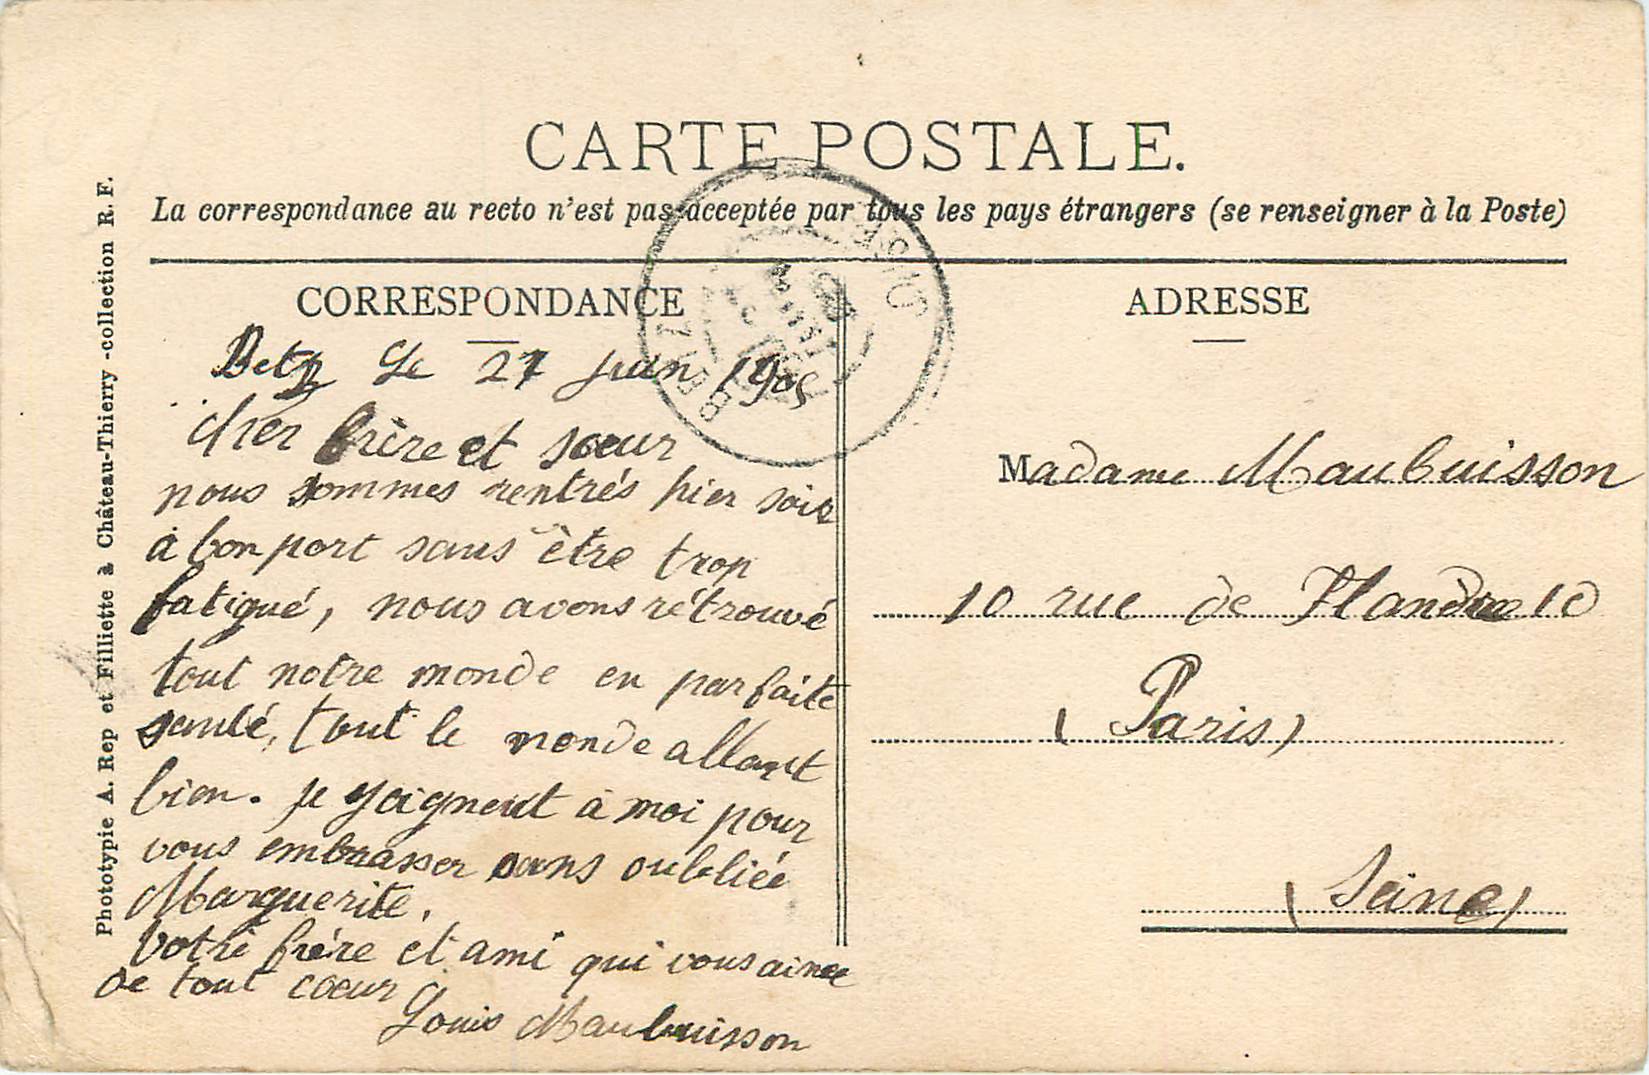 CARTE POSTALE.
La correspondance au recto n'est pas acceptée par tous les pays étrangers (se renseigner à la Poste)
CORRESPONDANCE
Betz le 27 juin 1905
cher frère et sœur
nous sommes rentrés hier soir
à bon port sans être trop
fatigué, nous avons rétrouvé
tout notre monde en parfaite
santé, tout le monde allant
bien. se yoignent à moi pour
vous embrasser sans oubliée
Marguerite.
Votre frère et ami qui vous aime
de tout cœur
Louis Maubuisson
ADRESSE
Madame Maubuisson
10 rue de Flandre 10
(Paris)
(Seine)
BETZ OISE
Phototypie A. Rep et Filliette à Château-Thierry -collection R. F.